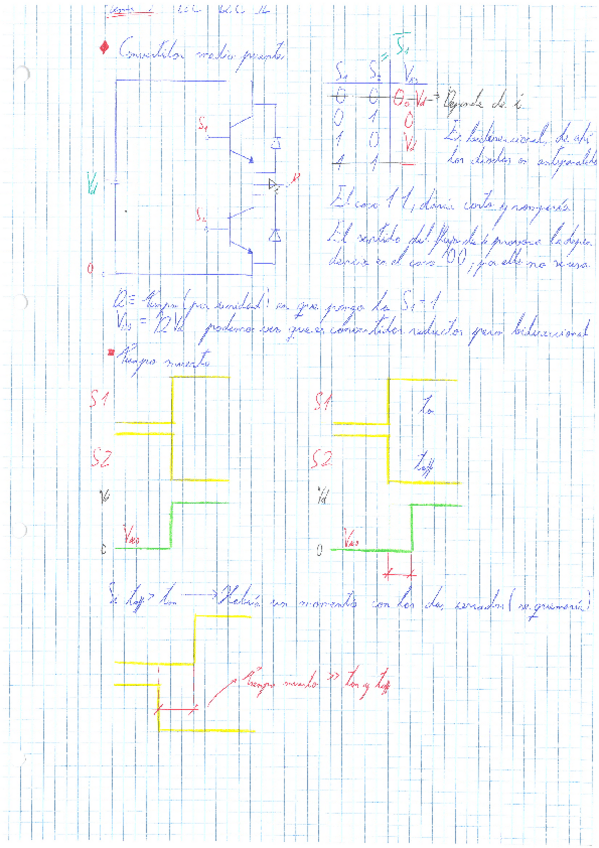 Convertidor medio puente
S1 S2 = S̄1 VA0
0 0 0 o Vd → Depende de i
0 1 0
1 0 Vd
1 1 —
Es bidireccional, de ahí
los diodos en antiparalelo
S1
Vd
A
S2
0
El caso 11, daría corto y rompería
El sentido del flujo de i provoca la depen
dencia en el caso 00, por ello no se usa
D ≡ tiempo (por unidad) en que pongo la S1 = 1
VA0 = D Vd podemos ver que es convertidor reductor pero bidireccional
Tiempo muerto
S1
S2
Vd
0
VA0
S1 ton
S2 toff
Vd
0
VA0
Si toff > ton → Habría un momento con los dos cerrados (se quemaría)
Tiempo muerto >> ton y toff